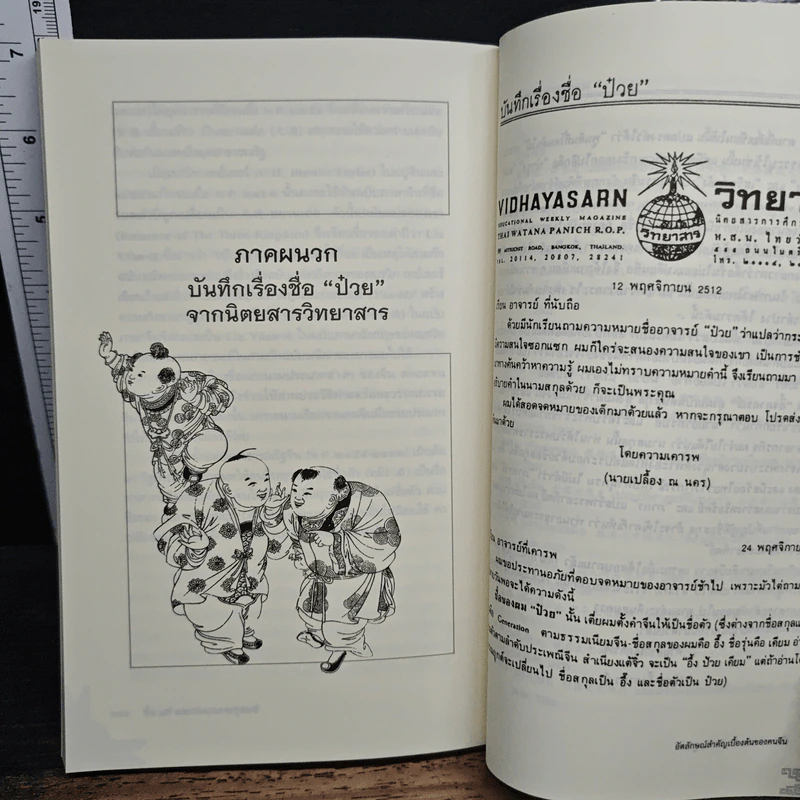 7
6
5
ภาคผนวก
บันทึกเรื่องชื่อ “ป๋วย”
จากนิตยสารวิทยาสาร
บันทึกเรื่องชื่อ “ป๋วย”
VIDHAYASARN
EDUCATIONAL WEEKLY MAGAZINE
THAI WATANA PANICH R.O.P.
ROAD, BANGKOK, THAILAND.
TEL. 20114, 20807, 28241
วิทยาสาร
วิทยา
นิตยสารการศึก
ห.ส.น. ไทยวั
๕๙๙ ถนนไมตรี
โทร. ๒๐๑๑๔, ๒๐
12 พฤศจิกายน 2512
เรียน อาจารย์ ที่นับถือ
ด้วยมีนักเรียนถามความหมายชื่ออาจารย์ “ป๋วย” ว่าแปลว่ากระ
ความสนใจซอกแซก ผมก็ใคร่จะสนองความสนใจของเขา เป็นการช่
ทางค้นคว้าหาความรู้ ผมเองไม่ทราบความหมายคำนี้ จึงเรียนถามมา
อธิบายคำในนามสกุลด้วย ก็จะเป็นพระคุณ
ผมได้สอดจดหมายของเด็กมาด้วยแล้ว หากจะกรุณาตอบ โปรดส่ง
มาด้วย
โดยความเคารพ
(นายเปลื้อง ณ นคร)
24 พฤศจิกาย
อาจารย์ที่เคารพ
ผมขอประทานอภัยที่ตอบจดหมายของอาจารย์ช้าไป เพราะมัวไต่ถาม
พอจะได้ความดังนี้
ชื่อของผม “ป๋วย” นั้น เตี่ยผมตั้งคำจีนให้เป็นชื่อตัว (ซึ่งต่างจากชื่อสกุลแ
Generation ตามธรรมเนียมจีน-ชื่อสกุลของผมคือ อึ๊ง ชื่อรุ่นคือ เคียม อ่
ตามลำดับประเพณีจีน สำเนียงแต้จิ๋ว จะเป็น “อึ๊ง ป๋วย เคียม” แต่ถ้าอ่านโด
จะเปลี่ยนไป ชื่อสกุลเป็น อึ๊ง และชื่อตัวเป็น ป๋วย)
อัตลักษณ์สำคัญเบื้องต้นของคนจีน